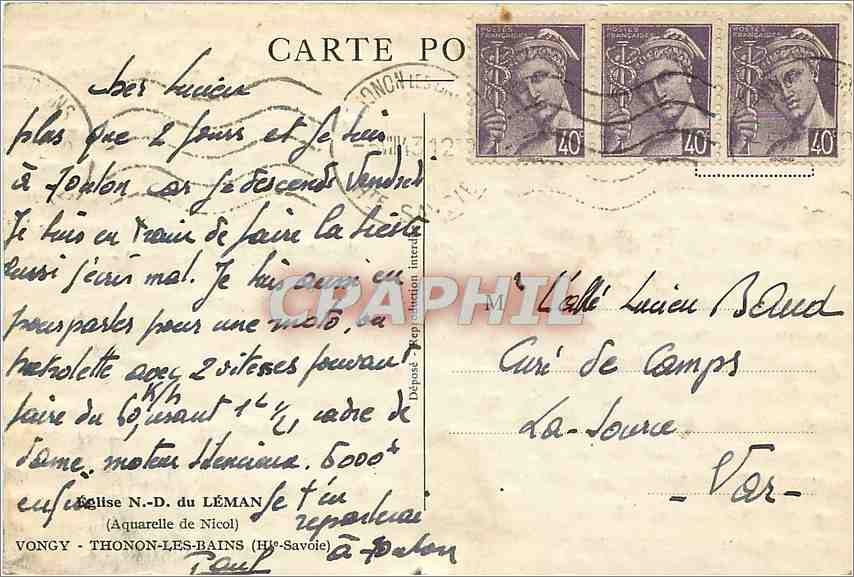 CARTE PO
POSTES FRANÇAISES 40
POSTES FRANÇAISES 40
POSTES FRANÇAISES 40
Cher Lucien
plus que 2 jours et je suis
à Toulon car je descends Vendredi
Je suis en train de faire la sieste
aussi j'écris mal. Je suis aussi en
pourparler pour une moto, ou
motrolette avec 2 vitesses pouvant
faire du 60 K/h, usant 1L ½, cadre de
dame, moteur silencieux. 6000
enfin je t'en
reparlerai
à Toulon
Paul
Déposé - Reproduction interdite
Mr L'abbé Lucien Baud
Curé de Camps
La-Source
- Var -
Église N.-D. du LÉMAN
(Aquarelle de Nicol)
VONGY - THONON-LES-BAINS (Hte-Savoie)
CPAPHIL